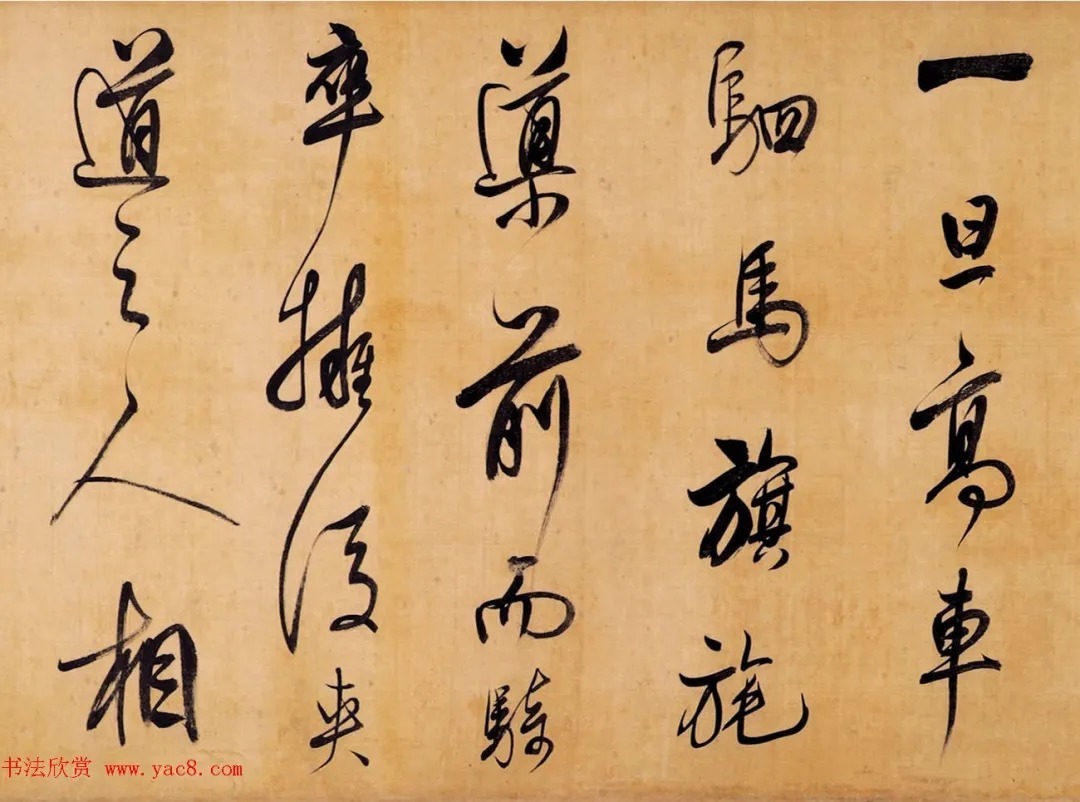 一旦高車
駟馬旗旄
導前而騎
卒擁後夾
道之人相
书法欣赏 www.yac8.com